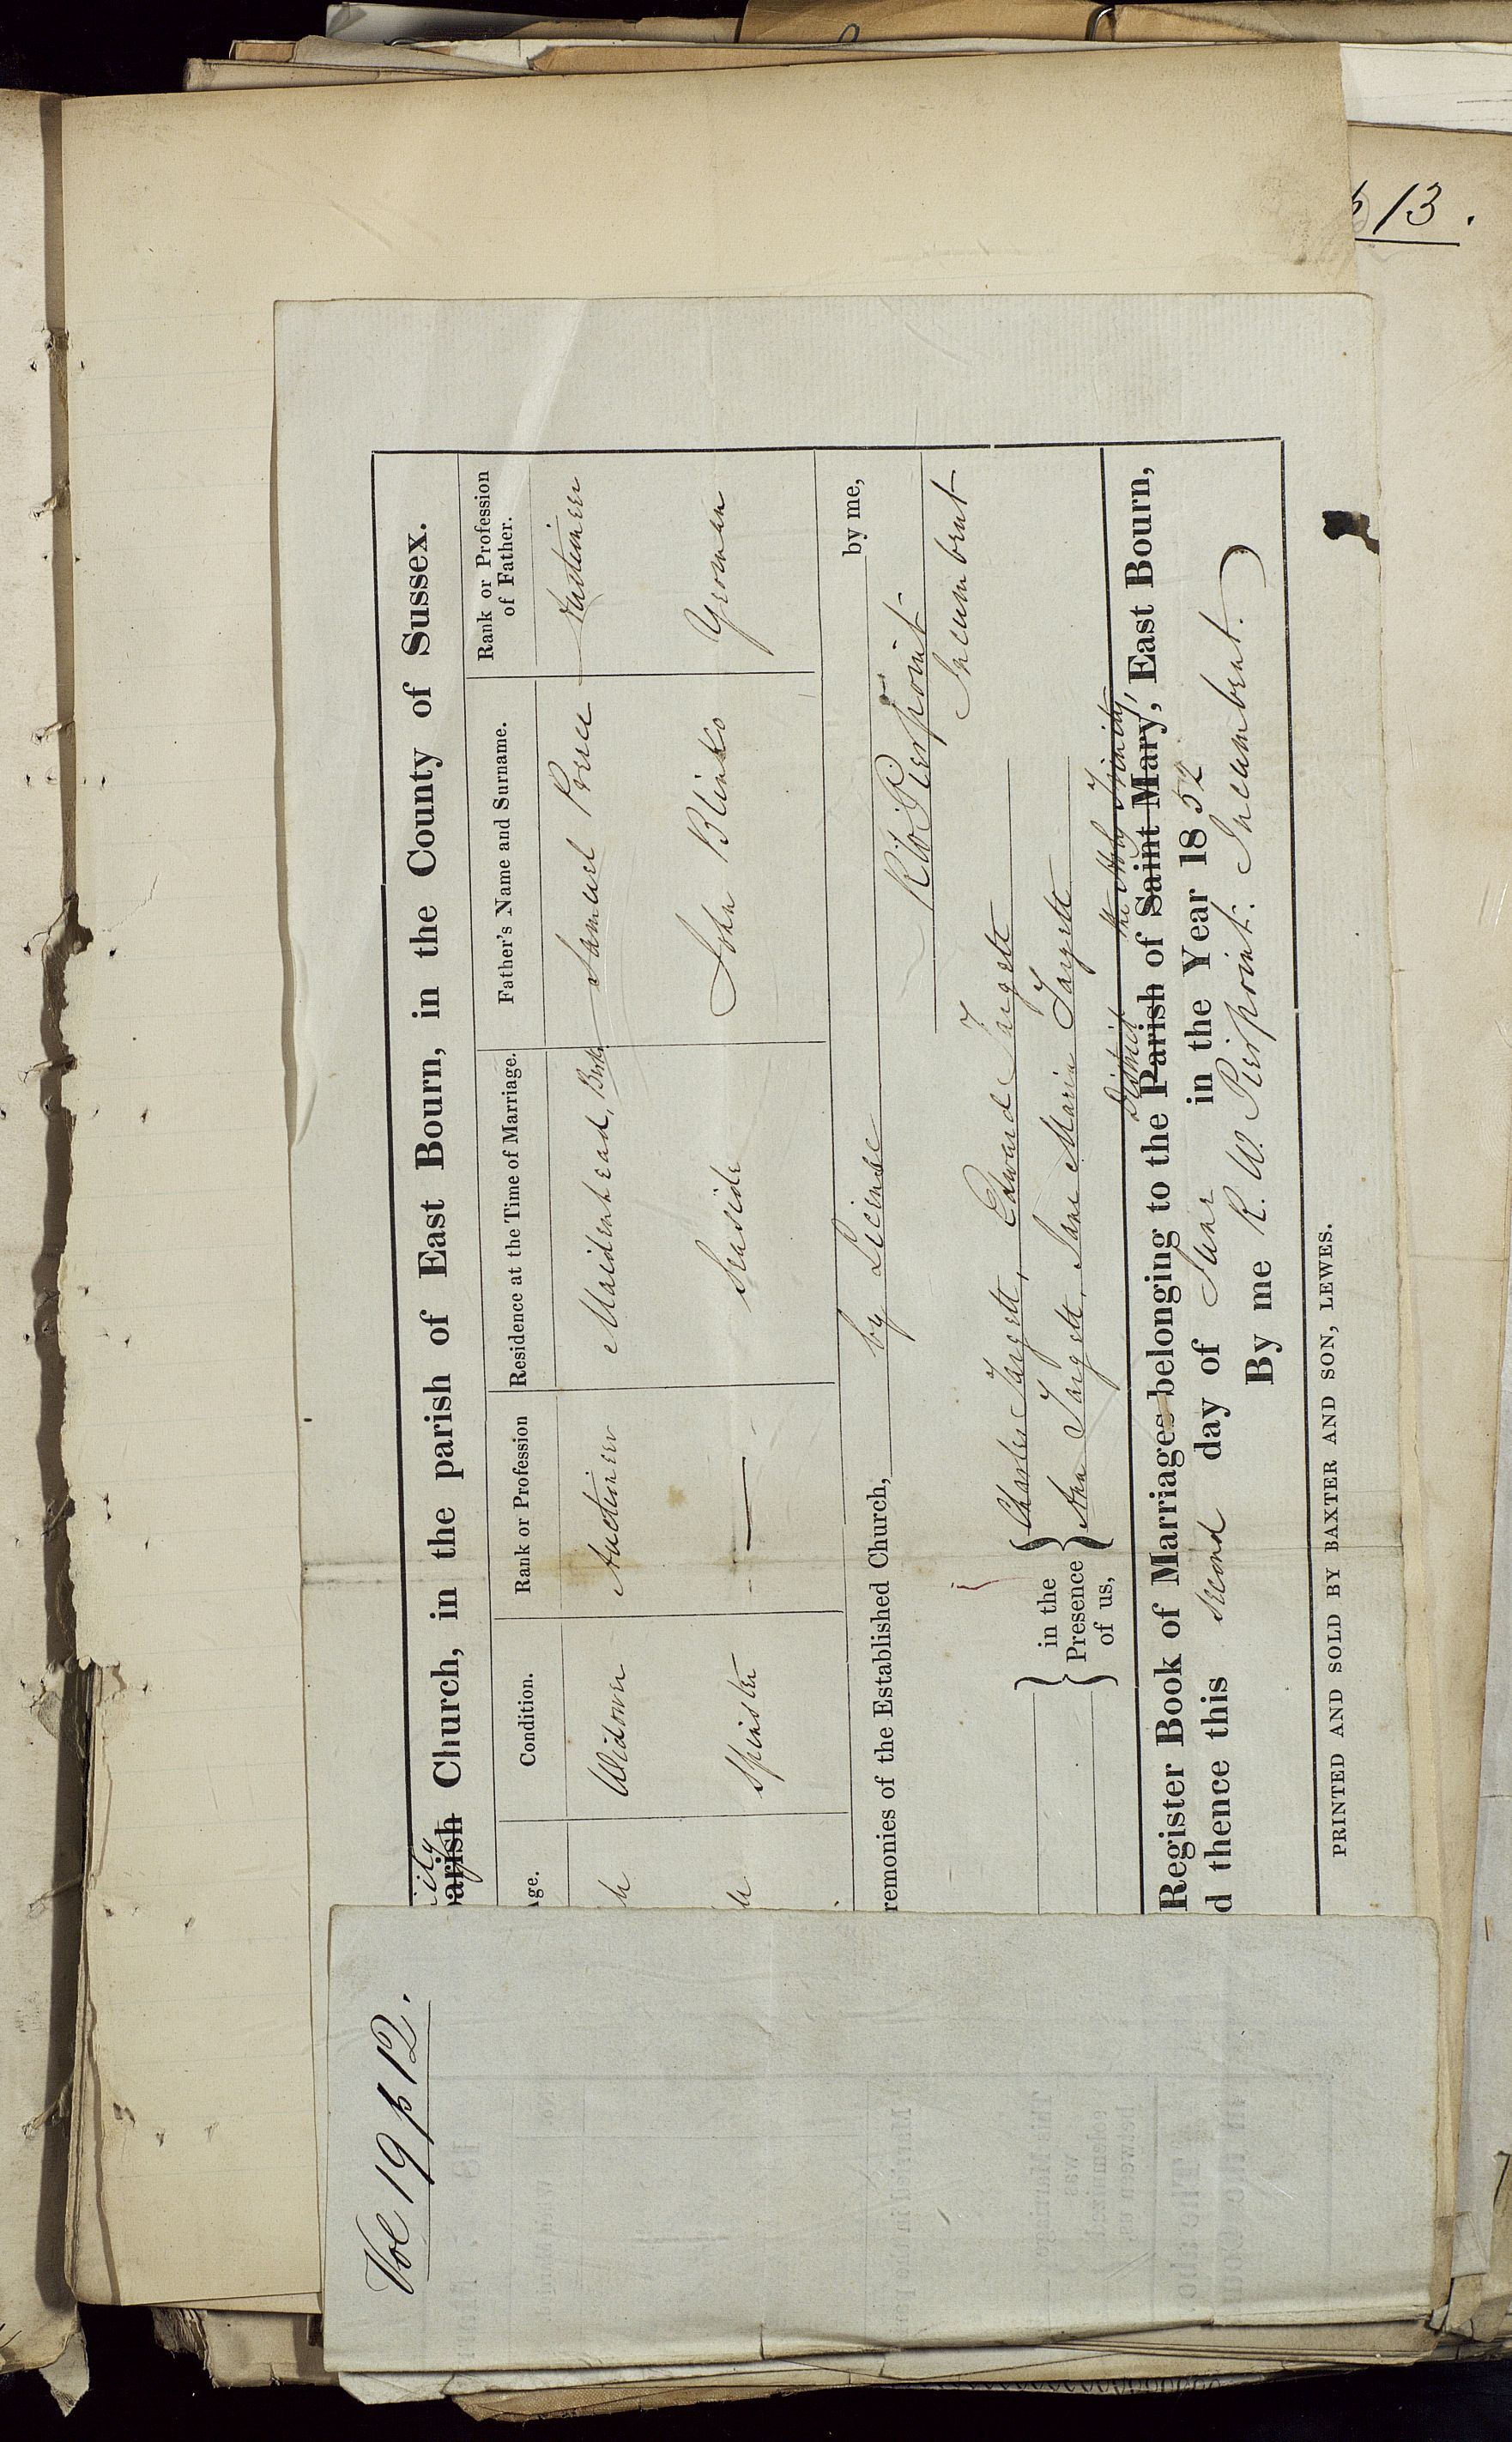 Vol 19 p 12.
p 13.
Parish Church, in the parish of East Bourn, in the County of Sussex.
Age. Condition. Rank or Profession Residence at the Time of Marriage. Father's Name and Surname. Rank or Profession of Father.
Widower Auctioneer Maidenhead, Berks. Samuel Auctioneer
Spinster — Seaside John Blinko Yeoman
remonies of the Established Church, by License by me,
R W Pierpoint
Incumbent
in the Presence of us,
Charles Targett, Edward Targett
Ann Targett, Jane Maria Targett
District the Holy Trinity,
Register Book of Marriages belonging to the Parish of Saint Mary, East Bourn,
d thence this second day of June in the Year 1852
By me R. W. Pierpoint. Incumbent.
PRINTED AND SOLD BY BAXTER AND SON, LEWES.